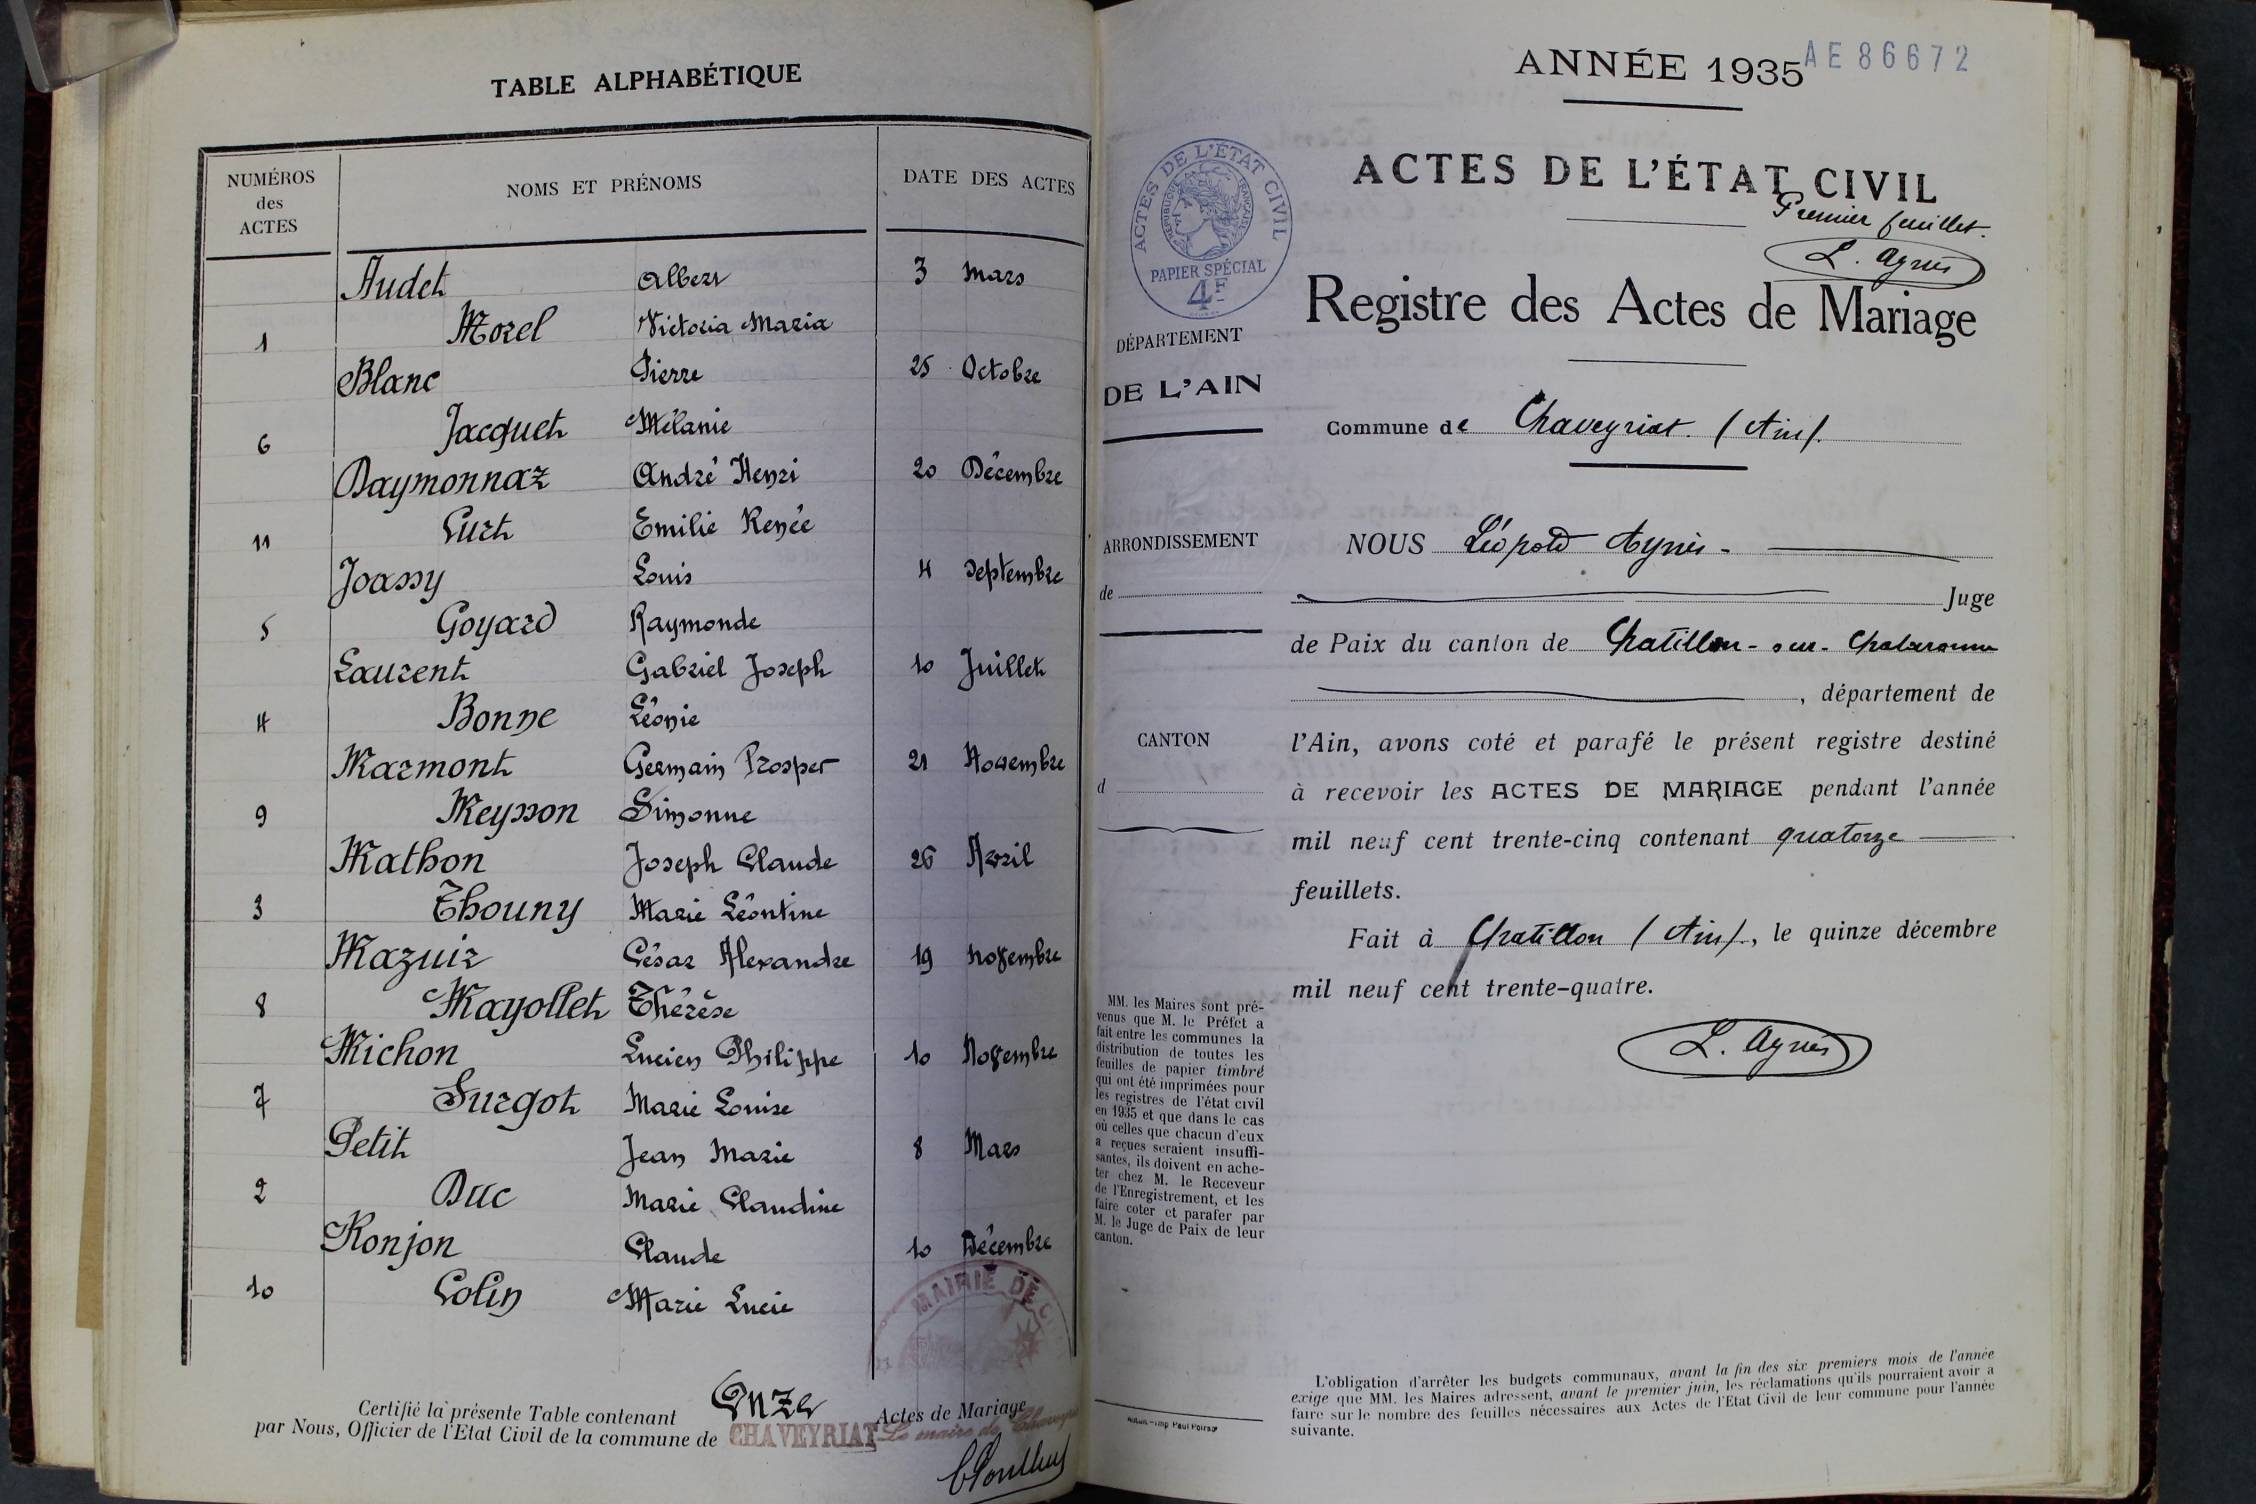 TABLE ALPHABÉTIQUE
NUMÉROS des ACTES NOMS ET PRÉNOMS DATE DES ACTES
Audet Albert 3 Mars
1 Morel Victoria Maria
Blanc Pierre 25 Octobre
6 Jacquet Mélanie
Daymonnaz André Henri 20 Décembre
11 Curt Emilie Renée
Joassy Louis 4 Septembre
5 Goyard Raymonde
Laurent Gabriel Joseph 10 Juillet
4 Bonne Léonie
Marmont Germain Prosper 21 Novembre
9 Meysson Simonne
Mathon Joseph Claude 26 Avril
3 Thouny Marie Léontine
Mazuir César Alexandre 19 novembre
8 Mayollet Thérèse
Michon Lucien Philippe 10 Novembre
7 Surgot Marie Louise
Petit Jean Marie 8 Mars
2 Duc Marie Claudine
Ronjon Claude 10 Décembre
10 Colin Marie Lucie
MAIRIE DE C
Certifié la présente Table contenant Onze Actes de Mariage
par Nous, Officier de l'Etat Civil de la commune de CHAVEYRIAT
Le maire de
ANNÉE 1935
AE 86672
ACTES DE L'ÉTAT CIVIL
Premier feuillet.
L. Agnès
ACTES DE L'ÉTAT CIVIL
RÉPUBLIQUE FRANÇAISE
PAPIER SPÉCIAL
4F
Registre des Actes de Mariage
DÉPARTEMENT
DE L'AIN
Commune de Chaveyriat. (Ain).
ARRONDISSEMENT
de
CANTON
d
NOUS Léopold Agnès -
Juge
de Paix du canton de Chatillon-sur-Chalaronne
, département de
l'Ain, avons coté et parafé le présent registre destiné
à recevoir les ACTES DE MARIAGE pendant l'année
mil neuf cent trente-cinq contenant quatorze
feuillets.
Fait à Chatillon (Ain), le quinze décembre
mil neuf cent trente-quatre.
L. Agnès
MM. les Maires sont pré-
venus que M. le Préfet a
fait entre les communes la
distribution de toutes les
feuilles de papier timbré
qui ont été imprimées pour
les registres de l'état civil
en 1935 et que dans le cas
où celles que chacun d'eux
a reçues seraient insuffi-
santes, ils doivent en ache-
ter chez M. le Receveur
de l'Enregistrement, et les
faire coter et parafer par
M. le Juge de Paix de leur
canton.
L'obligation d'arrêter les budgets communaux, avant la fin des six premiers mois de l'année
exige que MM. les Maires adressent, avant le premier juin, les réclamations qu'ils pourraient avoir a
faire sur le nombre des feuilles nécessaires aux Actes de l'Etat Civil de leur commune pour l'année
suivante.